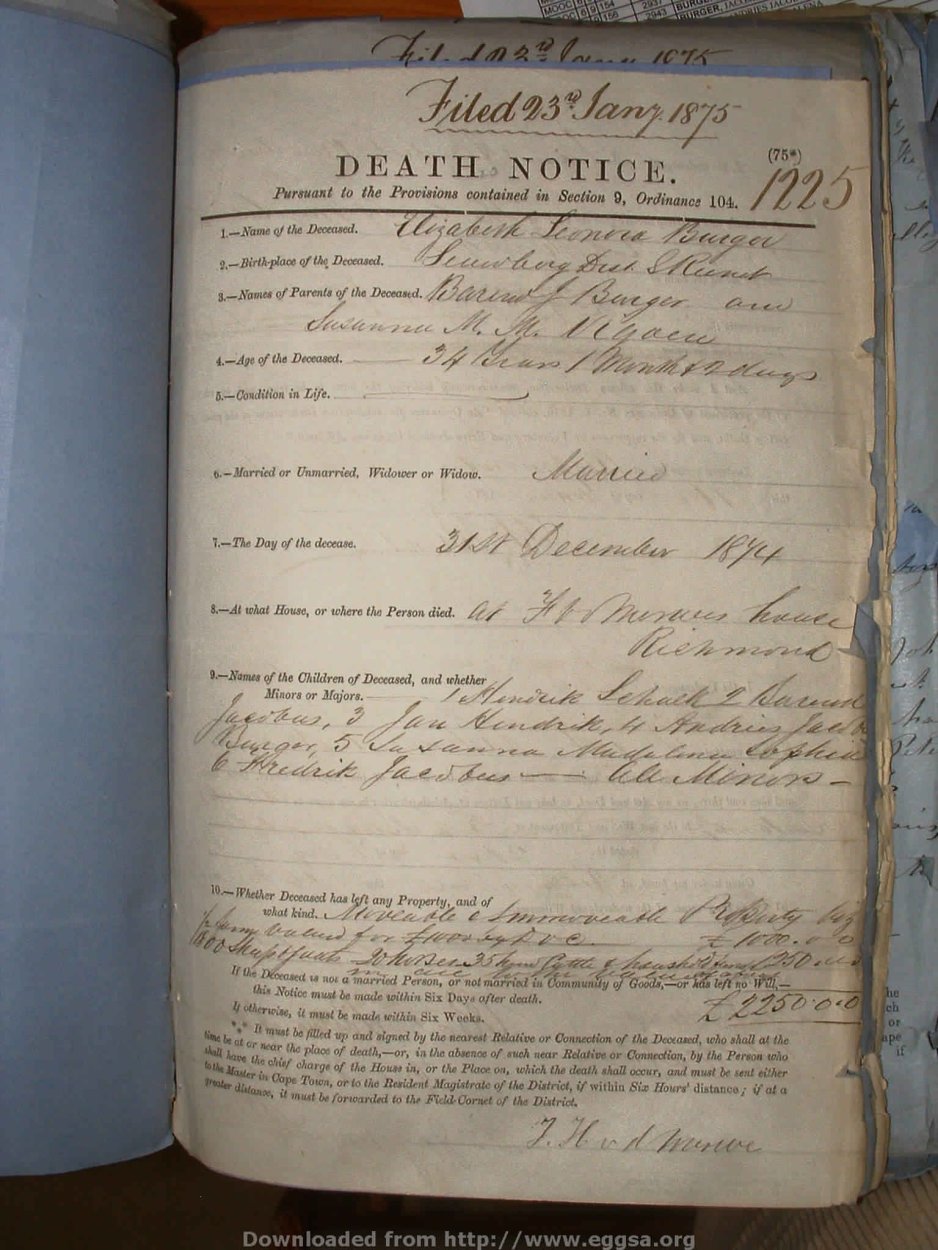 MOOC 6 9 154
156 2937 BURGER, JACOB
2943
Filed 23d Jany 1875
Filed 23d Jany. 1875
DEATH NOTICE. (75*)
1225
Pursuant to the Provisions contained in Section 9, Ordinance 104.
1.—Name of the Deceased. Elizabeth Leonora Burger
2.—Birth-place of the Deceased. Dist.
3.—Names of Parents of the Deceased. Barend J Burger and
Susanna M. M.
4.—Age of the Deceased. 34 Years 1 Month & 2 days
5.—Condition in Life.
6.—Married or Unmarried, Widower or Widow. Married
7.—The Day of the decease. 31st December 1874
8.—At what House, or where the Person died. at house
Richmond
9.—Names of the Children of Deceased, and whether
Minors or Majors. 1 Hendrik Schalk 2 Barend
Jacobus, 3 Jan Hendrik, 4 Andries Jacob
Burger, 5 Susanna Madelena Sophia
6 Fredrik Jacobus — All Minors —
10.—Whether Deceased has left any Property, and of
what kind. Moveable & Immoveable Property
valued for £1000 £1000.0.0
20 horses 35 Cattle & household 1250
If the Deceased is not a married Person, or not married in Community of Goods,—or has left no Will,—
this Notice must be made within Six Days after death. £2250.0.0
If otherwise, it must be made within Six Weeks.
*** It must be filled up and signed by the nearest Relative or Connection of the Deceased, who shall at the
time be at or near the place of death,—or, in the absence of such near Relative or Connection, by the Person who
shall have the chief charge of the House in, or the Place on, which the death shall occur, and must be sent either
to the Master in Cape Town, or to the Resident Magistrate of the District, if within Six Hours' distance; if at a
greater distance, it must be forwarded to the Field-Cornet of the District.
J. H v d Merwe
Downloaded from http://www.eggsa.org